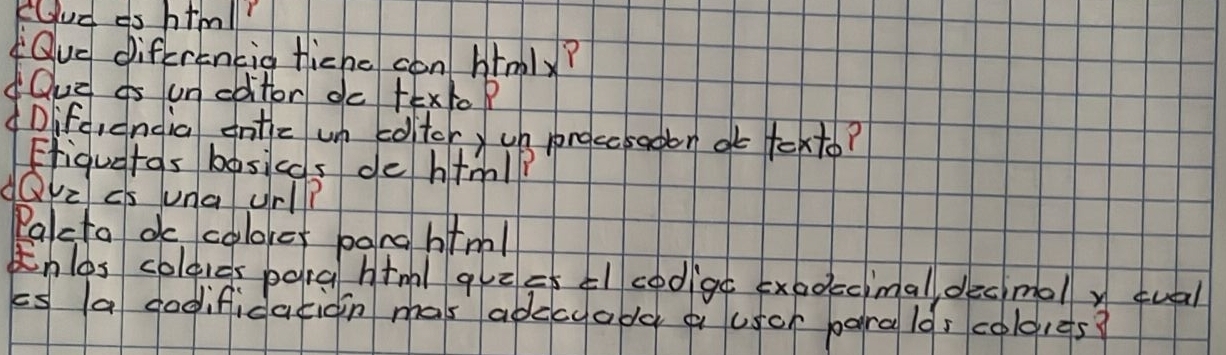 ¿Que es html?
¿Que diferencia tiene con htmlx?
¿Que es un editor de texto?
¿Diferencia entre un editor y un procesador de texto?
Etiquetas basicas de html?
¿Que es una url?
Paleta de colores para html
En los colores para html que es el codigo exadecimal, decimal y cual
es la codificación mas adecuada a usar para los colores?